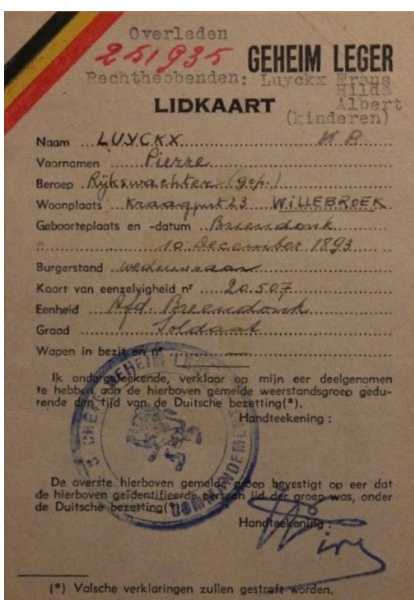 Overleden
251935 GEHEIM LEGER
Rechthebbenden: Luyckx Frans
Hilda
LIDKAART Albert
(kinderen)
Naam LUYCKX
Voornamen Pierre
Beroep Rijkswachter (gep.)
Woonplaats Kraagput 23 WILLEBROEK
Geboorteplaats en -datum Breendonk
" 10 December 1893
Burgerstand weduwnaar
Kaart van eenzelvigheid nr 20.507
Eenheid Afd. Breendonk
Graad Soldaat
Wapen in bezit en nr —
Ik ondergeteekende, verklaar op mijn eer deelgenomen
te hebben aan de hierboven gemelde weerstandsgroep gedu-
rende den tijd van de Duitsche bezetting(*).
Handteekening :
GEHEIM
De overste hierboven gemelde groep bevestigt op eer dat
de hierboven geïdentifieerde persoon lid der groep was, onder
de Duitsche bezetting(*)
Handteekening :
(*) Valsche verklaringen zullen gestraft worden.